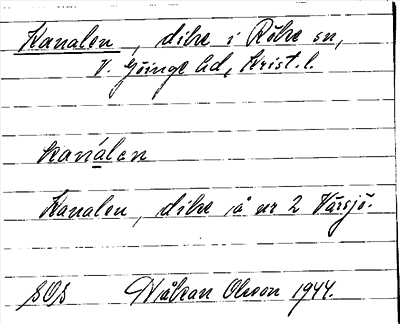 Kanalen, dike i Röke sn,
V. Göinge hd, Krist. l.
kanálan
Kanalen, dike å nr 2 Värsjö.
SOS Håkan Olsson 1944.